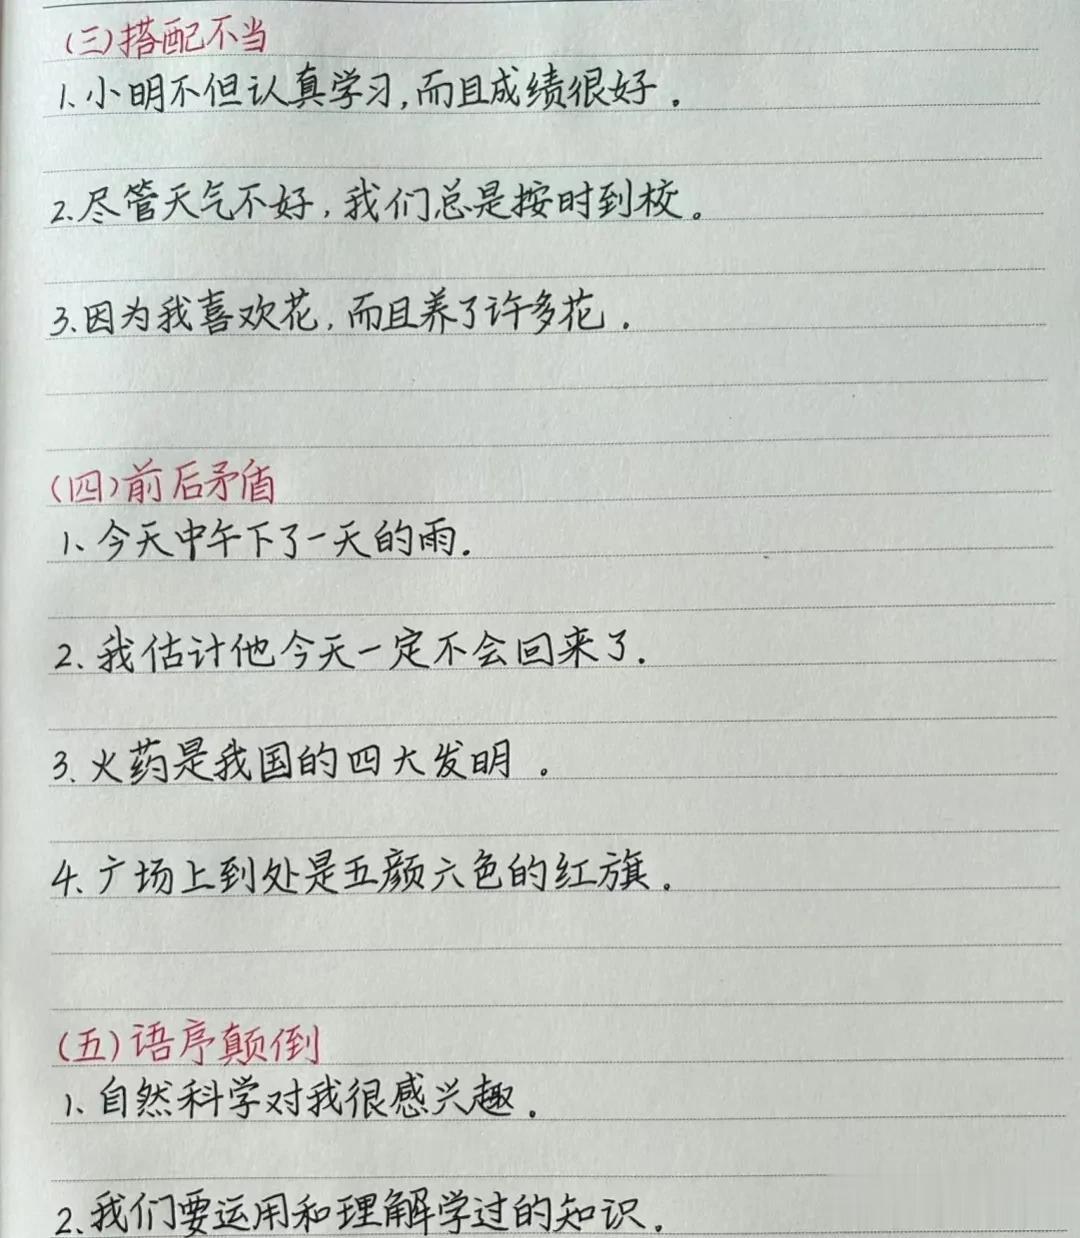 (三)搭配不当
1、小明不但认真学习,而且成绩很好。
2.尽管天气不好,我们总是按时到校。
3.因为我喜欢花,而且养了许多花。
(四)前后矛盾
1、今天中午下了一天的雨.
2、我估计他今天一定不会回来了.
3、火药是我国的四大发明。
4、广场上到处是五颜六色的红旗。
(五)语序颠倒
1、自然科学对我很感兴趣。
2、我们要运用和理解学过的知识。